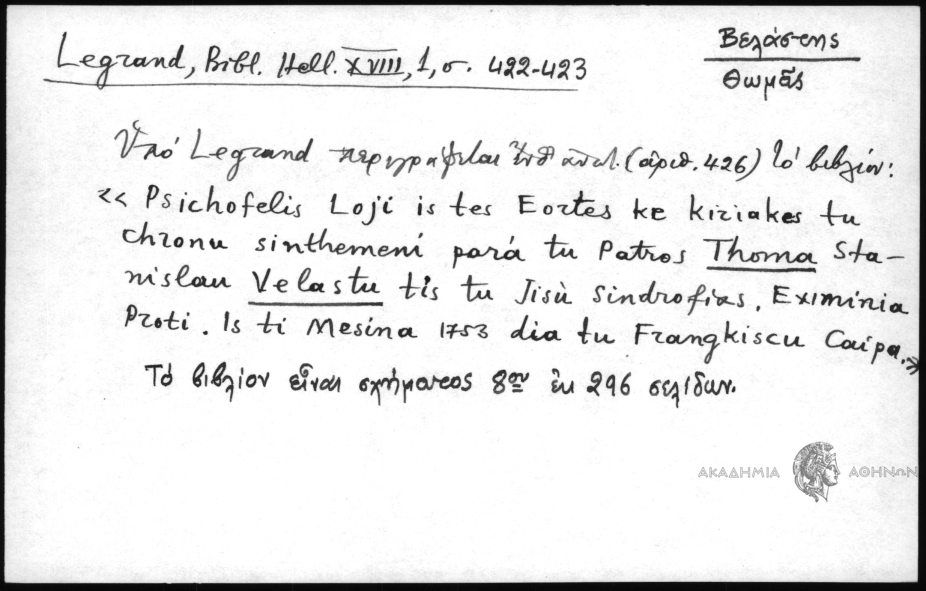 Βελάστης
Θωμᾶς
Legrand, Bibl. Hell. XVIII, 1, σ. 422-423
Ὑπό Legrand περιγράφεται ἔνθ' ἀνωτ. (ἀριθ. 426) τό βιβλίον:
<< Psichofelis Loji is tes Eortes ke kiriakes tu
chronu sinthemeni pará tu Patros Thoma Sta-
nislau Velastu tis tu Jisù Sindrofias. Eximinia
Proti. Is ti Mesina 1753 dia tu Frangkiscu Caipa.>>
Τό βιβλίον εἶναι σχήματος 8ον ἐκ 296 σελίδων.
ΑΚΑΔΗΜΙΑ ΑΘΗΝΩΝ